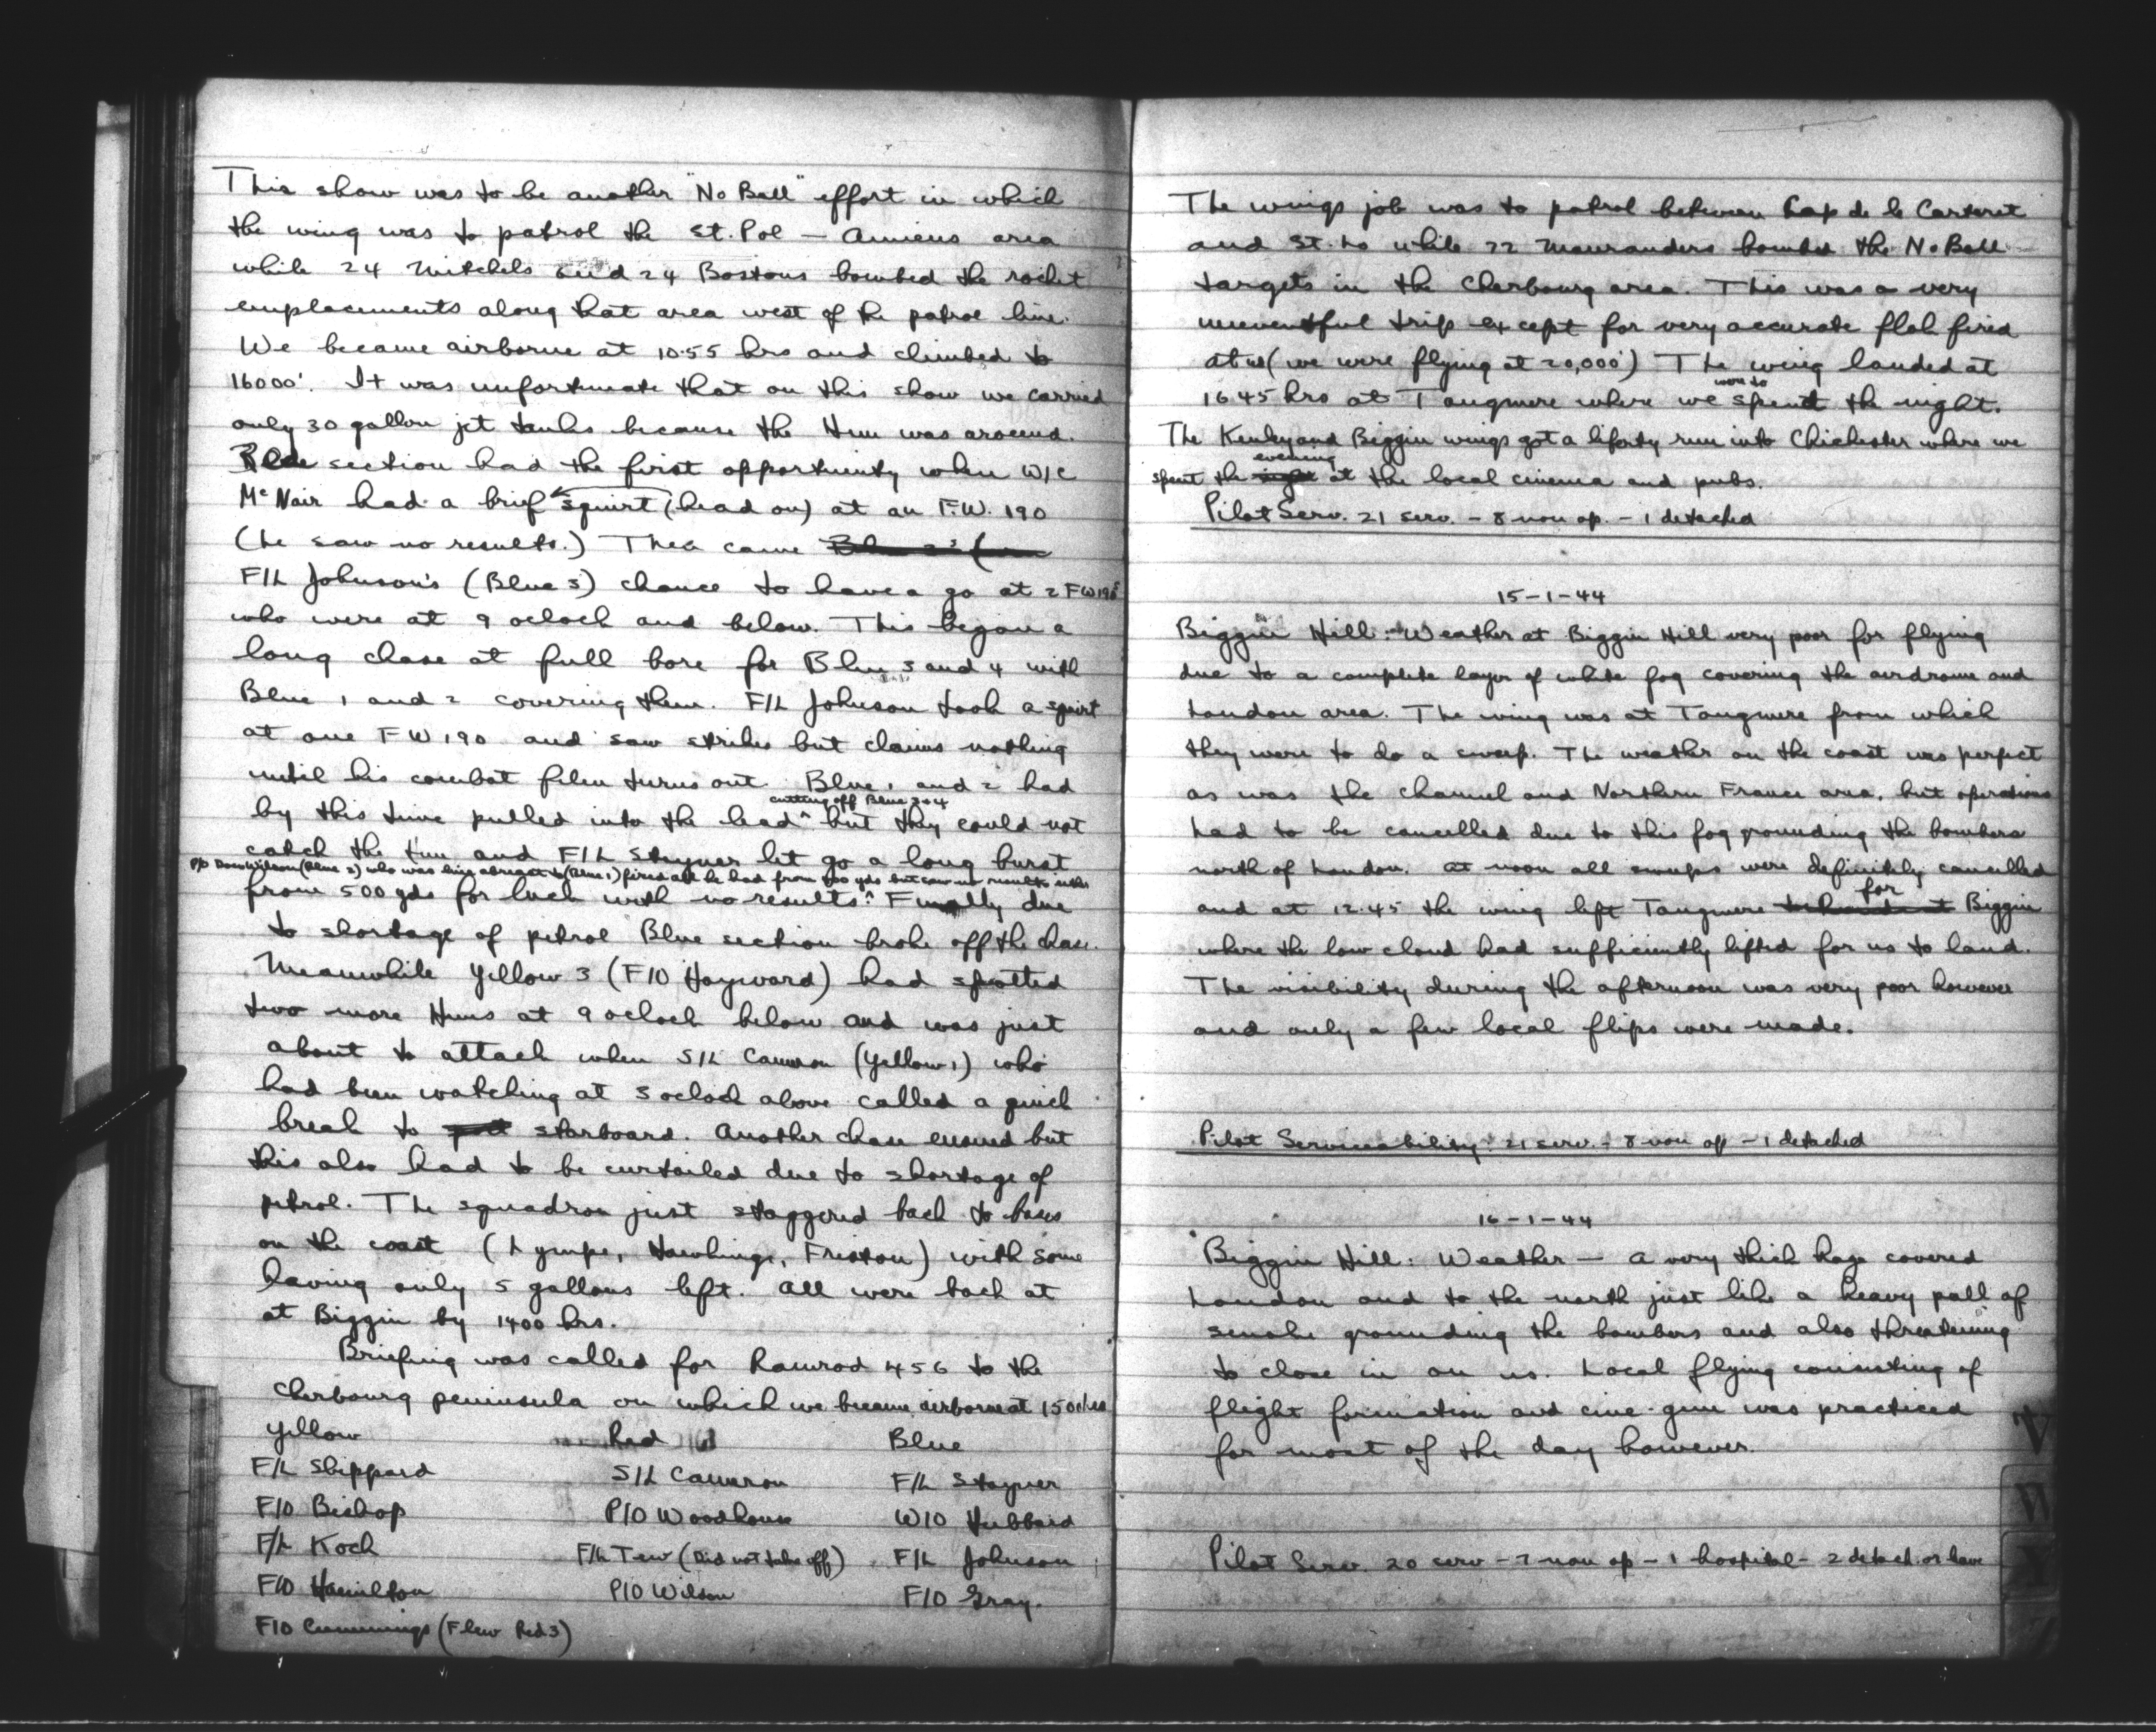 This show was to be another "No Ball" effort in which
the wing was to patrol the St. Pol — Amiens area
while 24 Mitchels and 24 Bostons bombed the rocket
emplacements along that area west of the patrol line.
We became airborne at 10.55 hrs and climbed to
16000'. It was unfortunate that on this show we carried
only 30 gallon jet tanks because the Hun was around.
Blue section had the first opportunity when W/C
McNair had a brief squirt (head on) at an F.W. 190
(he saw no results.) Then came
F/L Johnson's (Blue 3) chance to have a go at 2 FW190s
who were at 9 oclock and below. This began a
long chase at full bore for Blue 3 and 4 with
Blue 1 and 2 covering them. F/L Johnson took a squirt
at one FW190 and saw strikes but claims nothing
until his combat film turns out. Blue 1 and 2 had
cutting off Blue 3+4
by this time pulled into the lead ^ but they could not
catch the Hun and F/L Stayner let go a long burst
P/O Don Wilson (Blue 2) who was line abreast to (Blue 1) fired all he had from 500 yds but saw no results either
from 500 yds for luck with no results ^ Finally due
to shortage of petrol Blue section broke off the chase.
Meanwhile Yellow 3 (F/O Hayward) had spotted
two more Huns at 9 oclock below and was just
about to attack when S/L Cameron (Yellow 1) who
had been watching at 3 oclock above called a quick
break to port starboard. Another chase ensued but
this also had to be curtailed due to shortage of
petrol. The squadron just staggered back to bases
on the coast (Lympe, Hawkinge, Friston) with some
having only 5 gallons left. All were back at
at Biggin by 1400 hrs.
Briefing was called for Ramrod 456 to the
Cherbourg peninsula on which we became airborne at
Yellow Red Blue
F/L Sheppard S/L Cameron F/L Stayner
F/O Bishop P/O Woodhouse W/O Hubbard
F/L Koch F/L Tew (Did not take off) F/L Johnson
F/O Hamilton P/O Wilson F/O Gray.
F/O Cummings (Flew Red 3)
The wings job was to patrol between Cap de le Carteret
and St. Lo while 72 Mauranders bombed the No Ball
targets in the Cherbourg area. This was a very
uneventful trip except for very accurate flak fired
at us (we were flying at 20,000') The wing landed at
were to
1645 hrs at Tangmere where we spend the night.
The Kenley and Biggin wings got a liberty run into Chichester where we
evening
spent the night at the local cinema and pubs.
Pilot Serv. 21 serv. - 8 non op. - 1 detached
15-1-44
Biggin Hill: Weather at Biggin Hill very poor for flying
due to a complete layer of white fog covering the airdrome and
London area. The wing was at Tangmere from which
they were to do a sweep. The weather on the coast was perfect
as was the channel and Northern France area, but operations
had to be cancelled due to this fog grounding the bombers
north of London. At noon all sweeps were definitely cancelled
for
and at 12.45 the wing left Tangmere Biggin
where the low cloud had sufficiently lifted for us to land.
The visibility during the afternoon was very poor however
and only a few local flips were made.
Pilot Serviceability: 21 serv. - 8 non op - 1 detached
16-1-44
Biggin Hill: Weather — A very thick haze covered
London and to the north just like a heavy pall of
smoke grounding the bombers and also threatening
to close in on us. Local flying consisting of
flight formation and cine-gun was practiced
for most of the day however.
Pilot Serv. 20 serv - 7 non op - 1 hospital - 2 detach. or leave
V
W